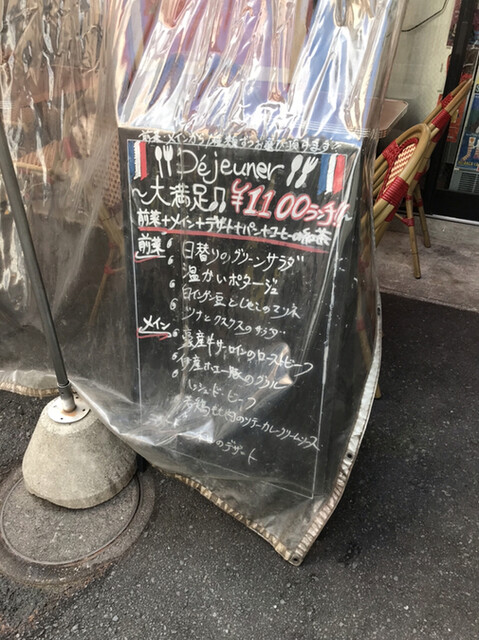 前菜、メインから1種類ずつお選び頂けます
Déjeuner
〜大満足♫¥1100ランチ!〜
前菜+メイン+デザート+パン+コーヒーor紅茶
前菜
日替りのグリーンサラダ
温かいポタージュ
白インゲン豆と
ツナとクスクスのサラダ
メイン
豪産牛サーロインのローストビーフ
産 豚のグリル
ハッシュドビーフ
若鶏もも肉のソテーカレークリームソース
のデザート